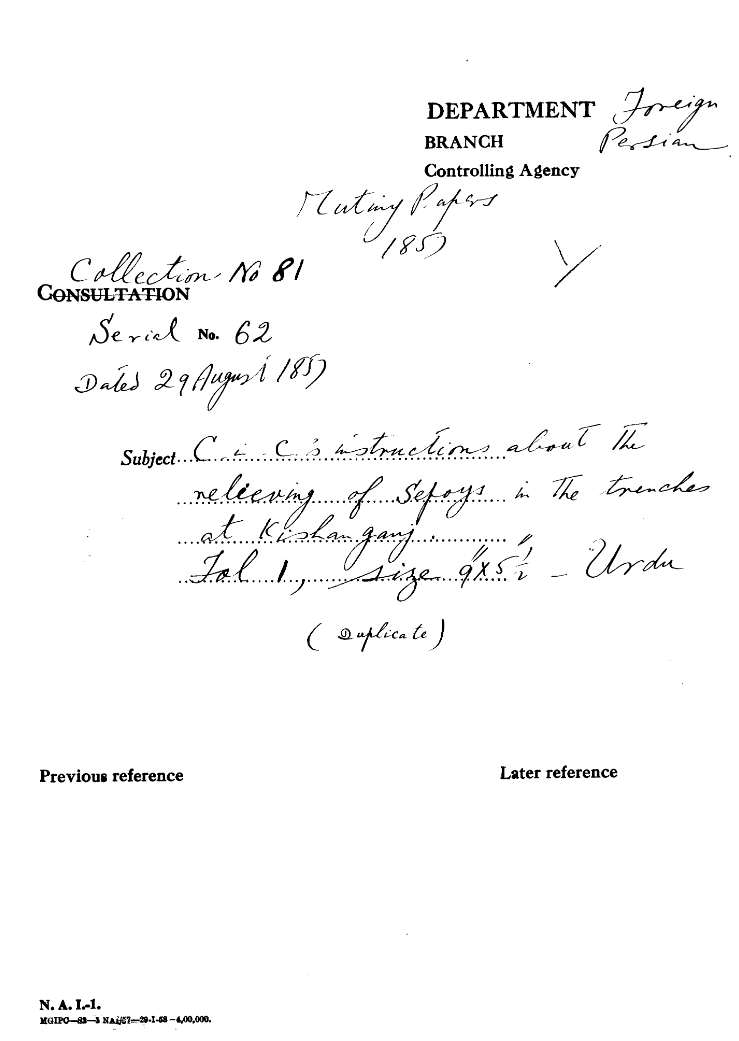 DEPARTMENT Foreign
BRANCH Persian
Controlling Agency
Mutiny Papers
1857
Collection No 81
CONSULTATION
Serial No. 62
Dated 29 August 1857
Subject C. in C's instructions about the
relieving of Sepoys in the trenches
at Kishanganj
Fol 1, size 9"x5½" - Urdu
(Duplicate)
Previous reference Later reference
N. A. I.-1.
MGIPC—S2—3 NAI/57—29-1-58—4,00,000.